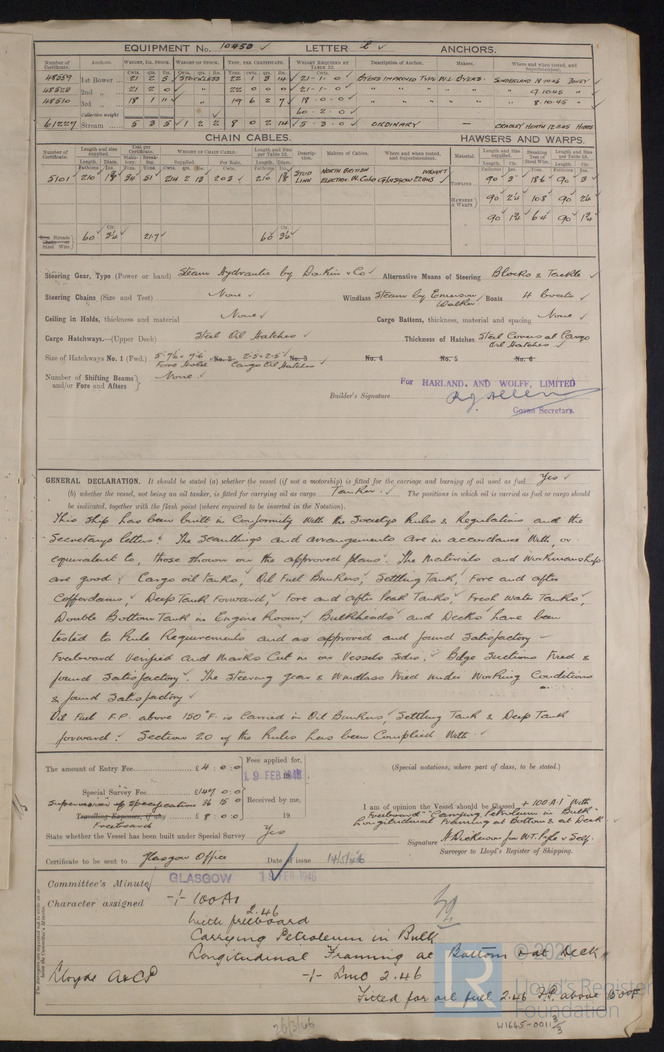 EQUIPMENT No. 10450 ✓ LETTER ANCHORS.
Number of Certificate. Anchors. WEIGHT, EX. STOCK. WEIGHT OF STOCK. TEST, PER CERTIFICATE. WEIGHT REQUIRED BY TABLE 22. Description of Anchor. Makers. Where and when tested, and Superintendent.
1st Bower 21 2 5 STOCKLESS 21-1-0 BYERS IMPROVED TYPE W.L. BYERS SUNDERLAND
48528 2nd „ 21 2 0 „ 22 0 0 0 21-1-0 „ „ „ 9.10.45 „
48510 3rd „ 18 1 11 „ 19 6 2 7 18-0-0 „ „ „ 8.10.45 „
Collective weight 60-2-0
61227 Stream 5 3 5 1 2 2 8 0 2 14 5-3-0 ORDINARY — CRADLEY HEATH
CHAIN CABLES. HAWSERS AND WARPS.
Number of Certificate. Length and size supplied. Test per Certificate. WEIGHT OF CHAIN CABLE. Length and size per Table 22. Description. Makers of Cables. Where and when tested, and Superintendent. Material. Length and size supplied. Breaking Test of Steel Wire. Length and size per Table 22.
5101 210 214 2 13 203 210 STUD LINK NORTH BRITISH ELECTRIC W. Co Ld GLASGOW TOWLINE 90 3 18.6 90 3
HAWSERS & WARPS 90 2¼ 10.8 90 2¼
90 1¾ 6.4 90 1¾
Steel Wire 60 3¼ 21.7 60 3¼
Steering Gear, Type (Power or hand) Steam Hydraulic by Donkin & Co Alternative Means of Steering Blocks & Tackle ✓
Steering Chains (Size and Test) None ✓ Windlass Steam by Emerson Walker ✓ Boats 4 boats ✓
Ceiling in Holds, thickness and material None ✓ Cargo Battens, thickness, material and spacing None ✓
Cargo Hatchways.—(Upper Deck) Steel Oil Hatches ✓ Thickness of Hatches Steel Covers at Cargo Oil Hatches ✓
Size of Hatchways No. 1 (Fwd.) 5-7½ × 7-6 Fore Hold No. 2 2-5 × 2-5 Cargo Oil Hatches No. 3 No. 4 No. 5 No. 6
Number of Shifting Beams and/or Fore and Afters None ✓
For HARLAND. AND WOLFF, LIMITED
Builder's Signature
Govan Secretary.
GENERAL DECLARATION. It should be stated (a) whether the vessel (if not a motorship) is fitted for the carriage and burning of oil used as fuel Yes ✓
(b) whether the vessel, not being an oil tanker, is fitted for carrying oil as cargo Tanker ✓ The positions in which oil is carried as fuel or cargo should
be indicated, together with the flash point (where required to be inserted in the Notation).
This ship has been built in Conformity with the Society's Rules & Regulations and the
Secretary's letters. The Scantlings and arrangements are in accordance with, or
equivalent to, those shown on the approved plans. The Materials and Workmanship
are good. Cargo oil Tanks, Oil Fuel Bunkers, Settling Tank, Fore and after
Cofferdams, Deep Tank Forward, Fore and after Peak Tanks, Fresh Water Tanks,
Double Bottom Tank in Engine Room, Bulkheads and Decks have been
tested to Rule Requirements and as approved and found Satisfactory —
Freeboard Verified and Marks Cut in on Vessels Sides. Bilge Suctions Tried &
found Satisfactory. The Steering gear & Windlass tried under Working Conditions
& found Satisfactory
Oil Fuel F.P. above 150°F. is carried in Oil Bunkers, Settling Tank & Deep Tank
forward. Section 20 of the Rules has been Complied With ✓
The amount of Entry Fee £4 : 0 : 0 Fees applied for, 19 FEB 1946
Special Survey Fee £147 0 : 0
Supervision of Specification 36 15 0 Received by me,
Travelling Expenses, if any £8 : 0 : 0 19
Freeboard
(Special notations, where part of class, to be stated.)
I am of opinion the Vessel should be Classed +100 A.1 With
Freeboard "Carrying Petroleum in Bulk"
Longitudinal Framing at Bottom & at Deck
State whether the Vessel has been built under Special Survey Yes
Signature for W.T. Pyle & Self.
Surveyor to Lloyd's Register of Shipping.
Certificate to be sent to Glasgow Office Date of issue 14/5/46
Committee's Minute GLASGOW 18 FEB 1946
Character assigned + 100 A1
2.46
With freeboard
Carrying Petroleum in Bulk
Longitudinal Framing at Bottom & at Deck
Lloyds A&CP + LMC 2.46
Fitted for oil fuel 2.46 F.P. above 150°F
26/3/46
W1665-0011 3/3
© 2020
LR
Lloyd's Register
Foundation